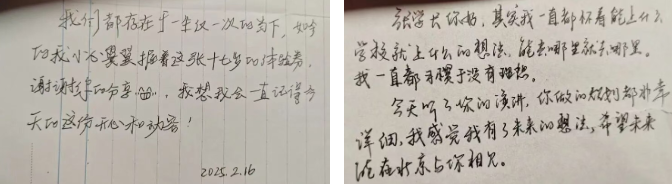 我们都存在于一生仅一次的当下，如今
的我小心翼翼握着这张十七岁的体验券，
谢谢学长的分享，我想我会一直记得今
天的这份开心和动容！
2025.2.16
张学长你好，其实我一直都怀着能上什么
学校就上什么的想法，能去哪里就去哪里。
我一直都习惯于没有理想。
今天听了你的演讲，你做的规划都非常
详细，我感觉我有了未来的想法，希望未来
能在北京与你相见。